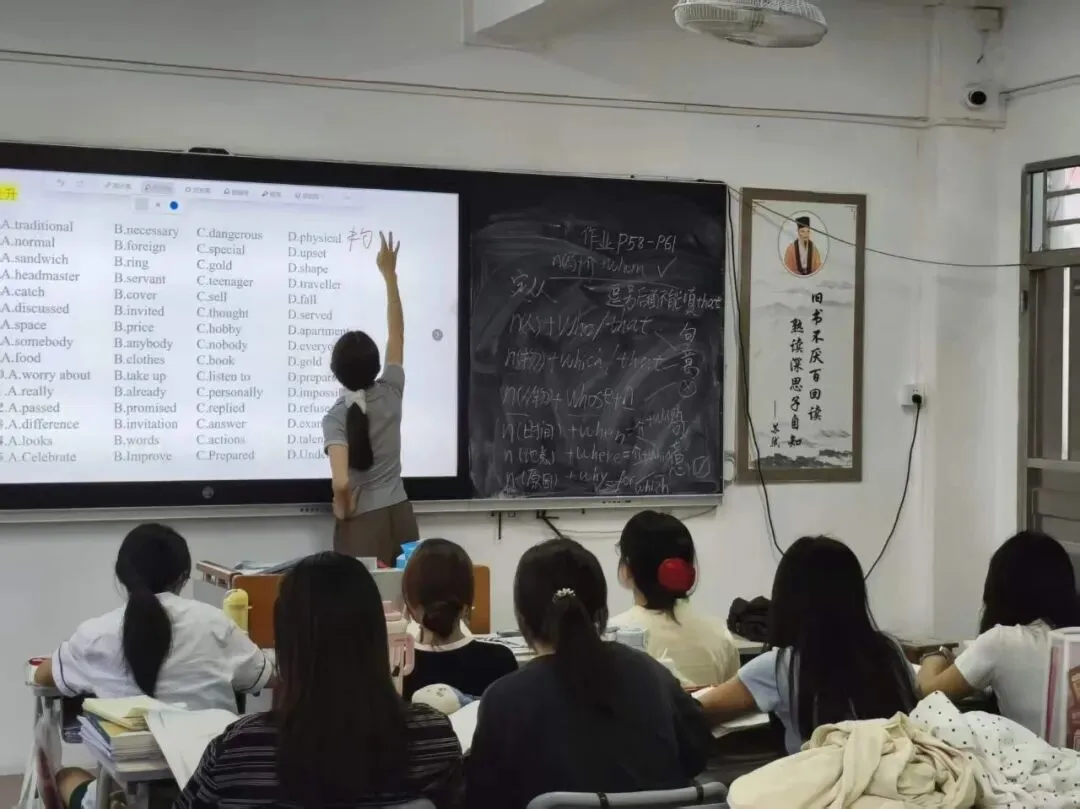 升
A.traditional B.necessary C.dangerous D.physical
A.normal B.foreign C.special D.upset
A.sandwich B.ring C.gold D.shape
A.headmaster B.servant C.teenager D.traveller
A.catch B.cover C.sell D.fall
A.discussed B.invited C.thought D.served
A.space B.price C.hobby D.apartment
A.somebody B.anybody C.nobody
A.food B.clothes C.book D.gold
A.worry about B.take up C.listen to
A.really B.already C.personally
A.passed B.promised C.replied
A.difference B.invitation C.answer
A.looks B.words C.actions
A.Celebrate B.Improve C.Prepared
作业 P58-P61
whom ✓
定从
that
n(人)+who/that
n(物)+which/that
n(人物)+whose+n
n(时间)+when
n(地点)+where
n(原因)+why for which
旧书不厌百回读
熟读深思子自知
——苏轼